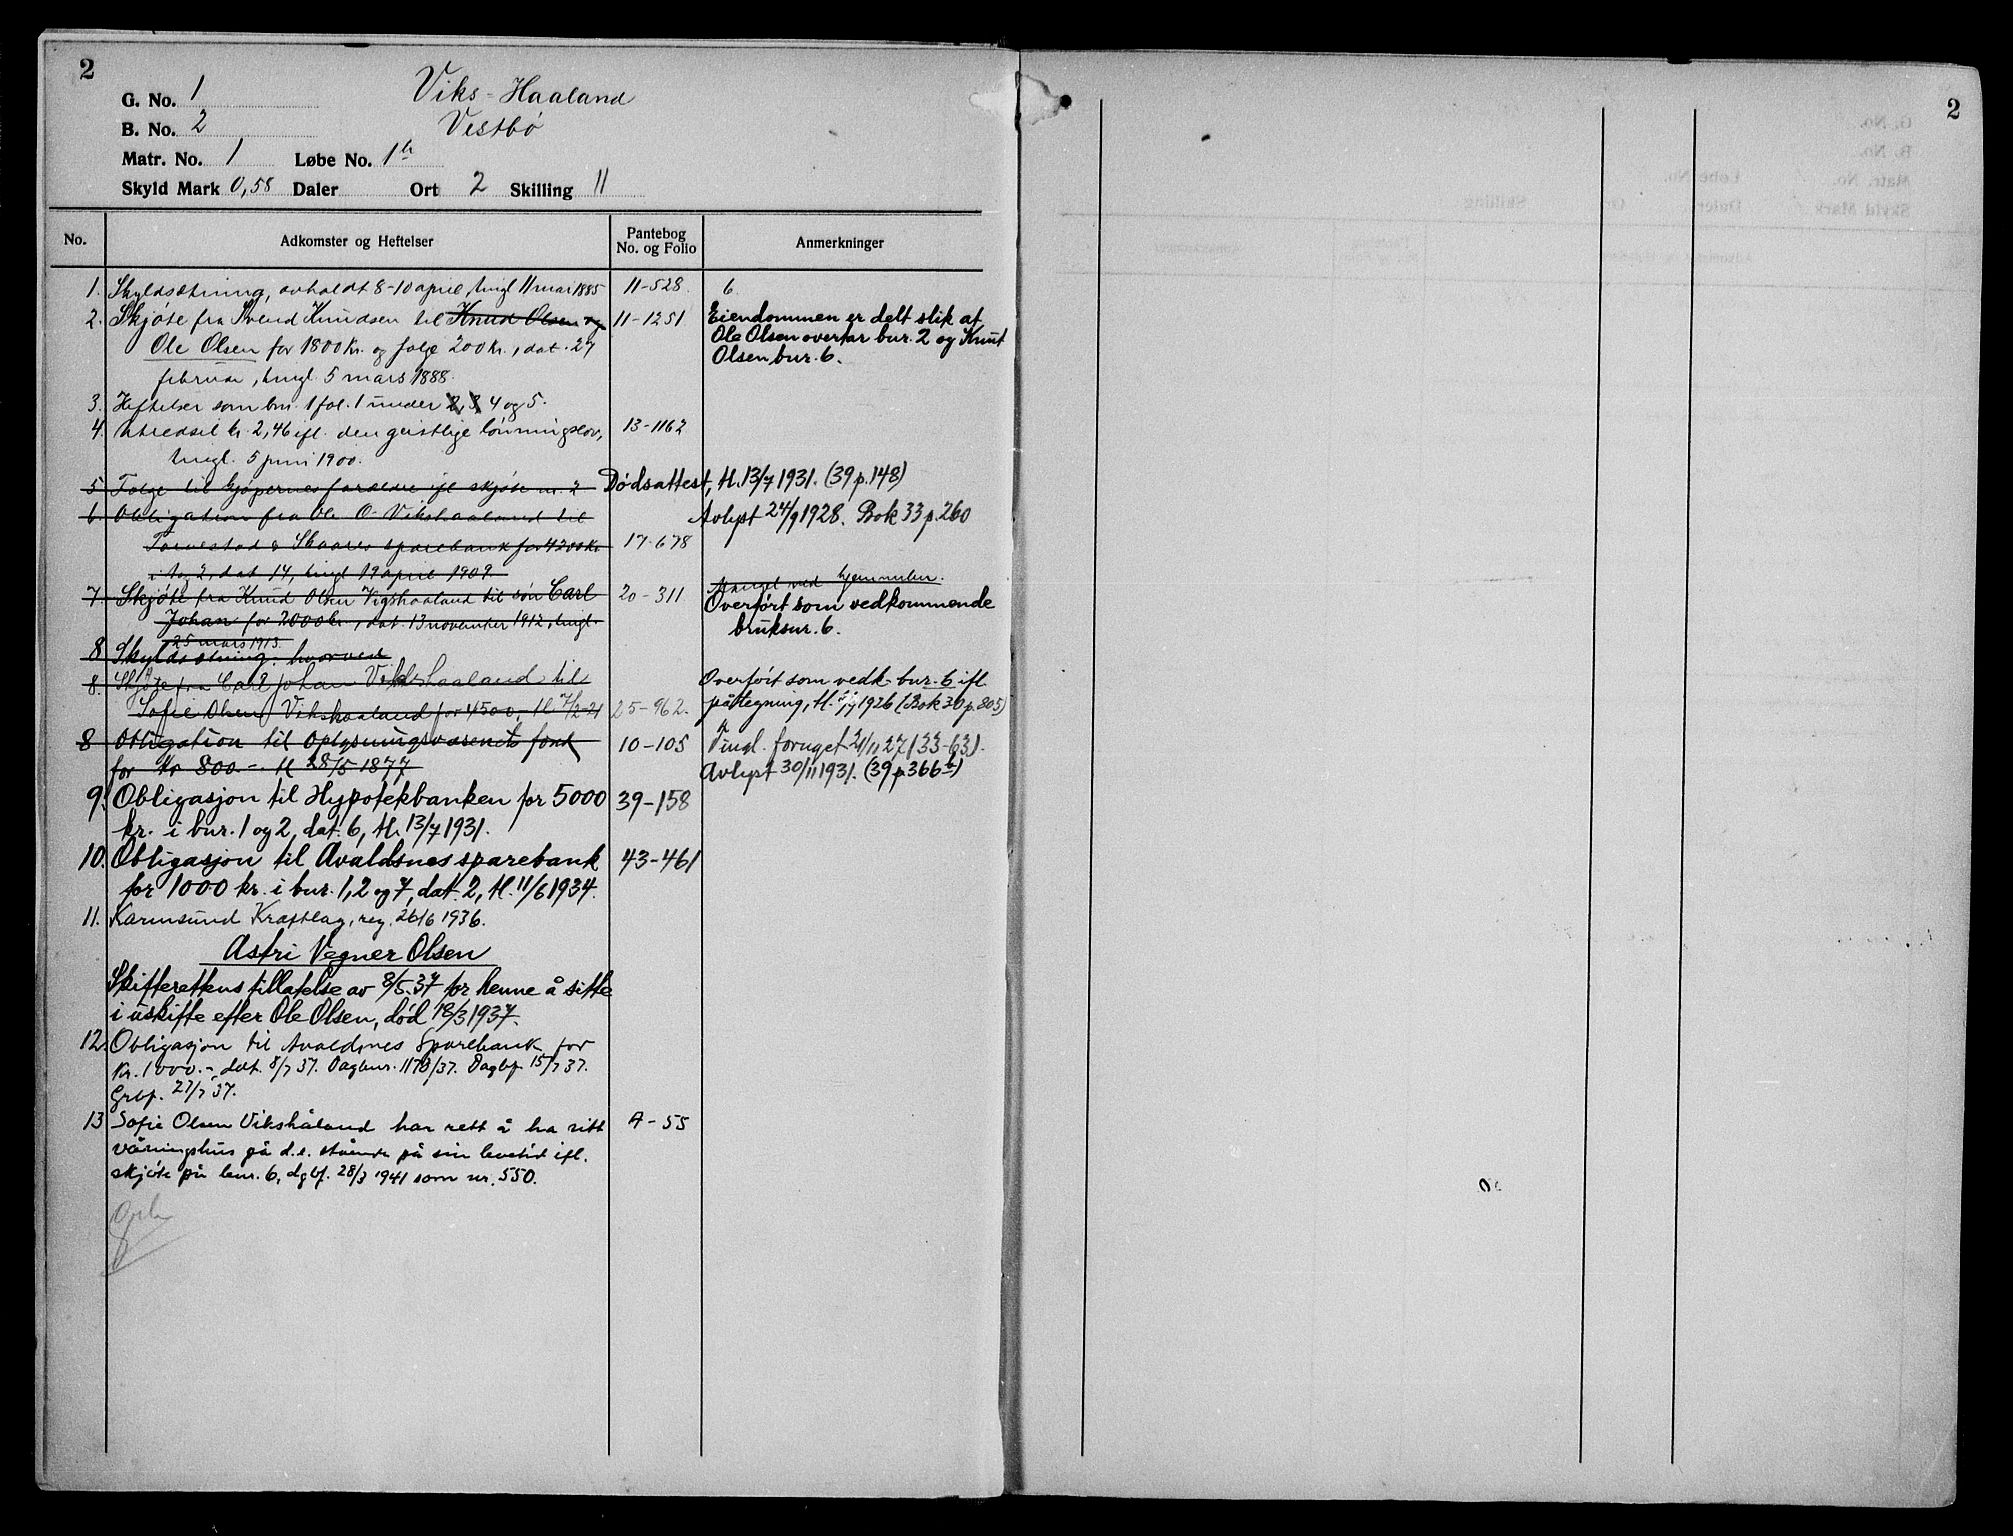 2
G. No. 1
Viks-Haaland
B. No. 2
Vestbö
Matr. No. 1 Løbe No. 1
Skyld Mark 0,58 Daler Ort 2 Skilling 11
No. Adkomster og Heftelser Pantebog No. og Folio Anmerkninger
1. Skyldsætning, avholdt 8-10 april, tingl 11 mai 1885 11-528. 6.
2. Skjöte fra Svend Knudsen til Knud Olsen og 11-1251 Eiendommen er delt slik at
Ole Olsen for 1800 kr. og folge 200 kr., dat. 27 Ole Olsen overtar bnr. 2 og Knut
februar, tingl. 5 mars 1888. Olsen bnr. 6.
3. Heftelser som bnr. 1 fol. 1 under 2, 3, 4 og 5.
4. Utredsel kr. 2,46 ifl. den geistlige lönningslov, 13-1162
tingl. 5 juni 1900.
5 Folge til kjöpernes forældre ifl skjöte nr. 2 Dødsattest, tl. 13/7 1931. (39 p. 148)
6. Obligation fra Ole O. Vikshaaland til Avlyst 24/9 1928. Bok 33 p. 260
Torvestad & Skaares sparebank for 4200 kr. 17-678
i 1 og 2, dat 14, tingl 19 april 1909.
7. Skjöte fra Knud Olsen Vigshaaland til sön Carl 20-311 ved hjemmelen.
Johan for 2000 kr., dat. 13 november 1912, tingl. Overført som vedkommende
25 mars 1913. bruksnr. 6.
8 Skyldsætning, hvorved
8. Skjöte fra Carl Johan Vikshaaland til Overført som vedk. bnr. 6 ifl.
Sofie Olsen Vikshaaland for 4500,- tl 7/2-21 25-962. påtegning, tl. 1926 (Bok 30 p. 805)
8 Obligation til Oplysningsvæsenets fond 10-105 Tingl. fornyet 21/11 27 (33-63).
for kr 800.- tl 28/5 1877 Avlyst 30/11 1931. (39 p. 366)
9. Obligasjon til Hypotekbanken for 5000 39-158
kr. i bnr. 1 og 2, dat. 6, tl. 13/7 1931.
10. Obligasjon til Avaldsnes sparebank 43-461
for 1000 kr. i bnr. 1, 2 og 7, dat. 2, tl. 11/6 1934.
11. Karmsund Kraftlag, reg. 26/6 1936.
Astri Vegner Olsen
Skifterettens tillatelse av 8/5.37 for henne å sitte
i uskifte efter Ole Olsen, död 18/3 1937.
12. Obligasjon til Avaldsnes Sparebank for
kr. 1000.-, dat. 8/7 37. Dagbnr. 1170/37. Dagbf. 15/7 37.
Grbf. 27/7 37.
13 Sofie Olsen Vikshåland har rett å ha sitt A-55
våningshus på d.e. stående på sin levetid ifl.
skjöte på bnr. 6, dgbf. 28/3 1941 som nr. 550.
2